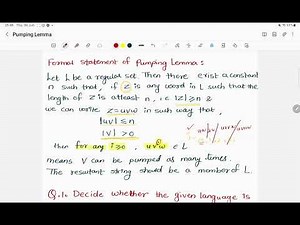 Pumping Lemma
Formal statement of Pumping Lemma :
Let L be a regular set. Then there exist a constant
n such that, if z is any word in L such that the
length of z is atleast n, i.e |z| ≥ n
we can write z=uvw in such way that
|uv| ≤ n
|v| > 0
then for any i≥0, uvⁱw ∈ L
means v can be pumped as many times.
The resultant string should be a member of L.
Q.1. Decide whether the given language is